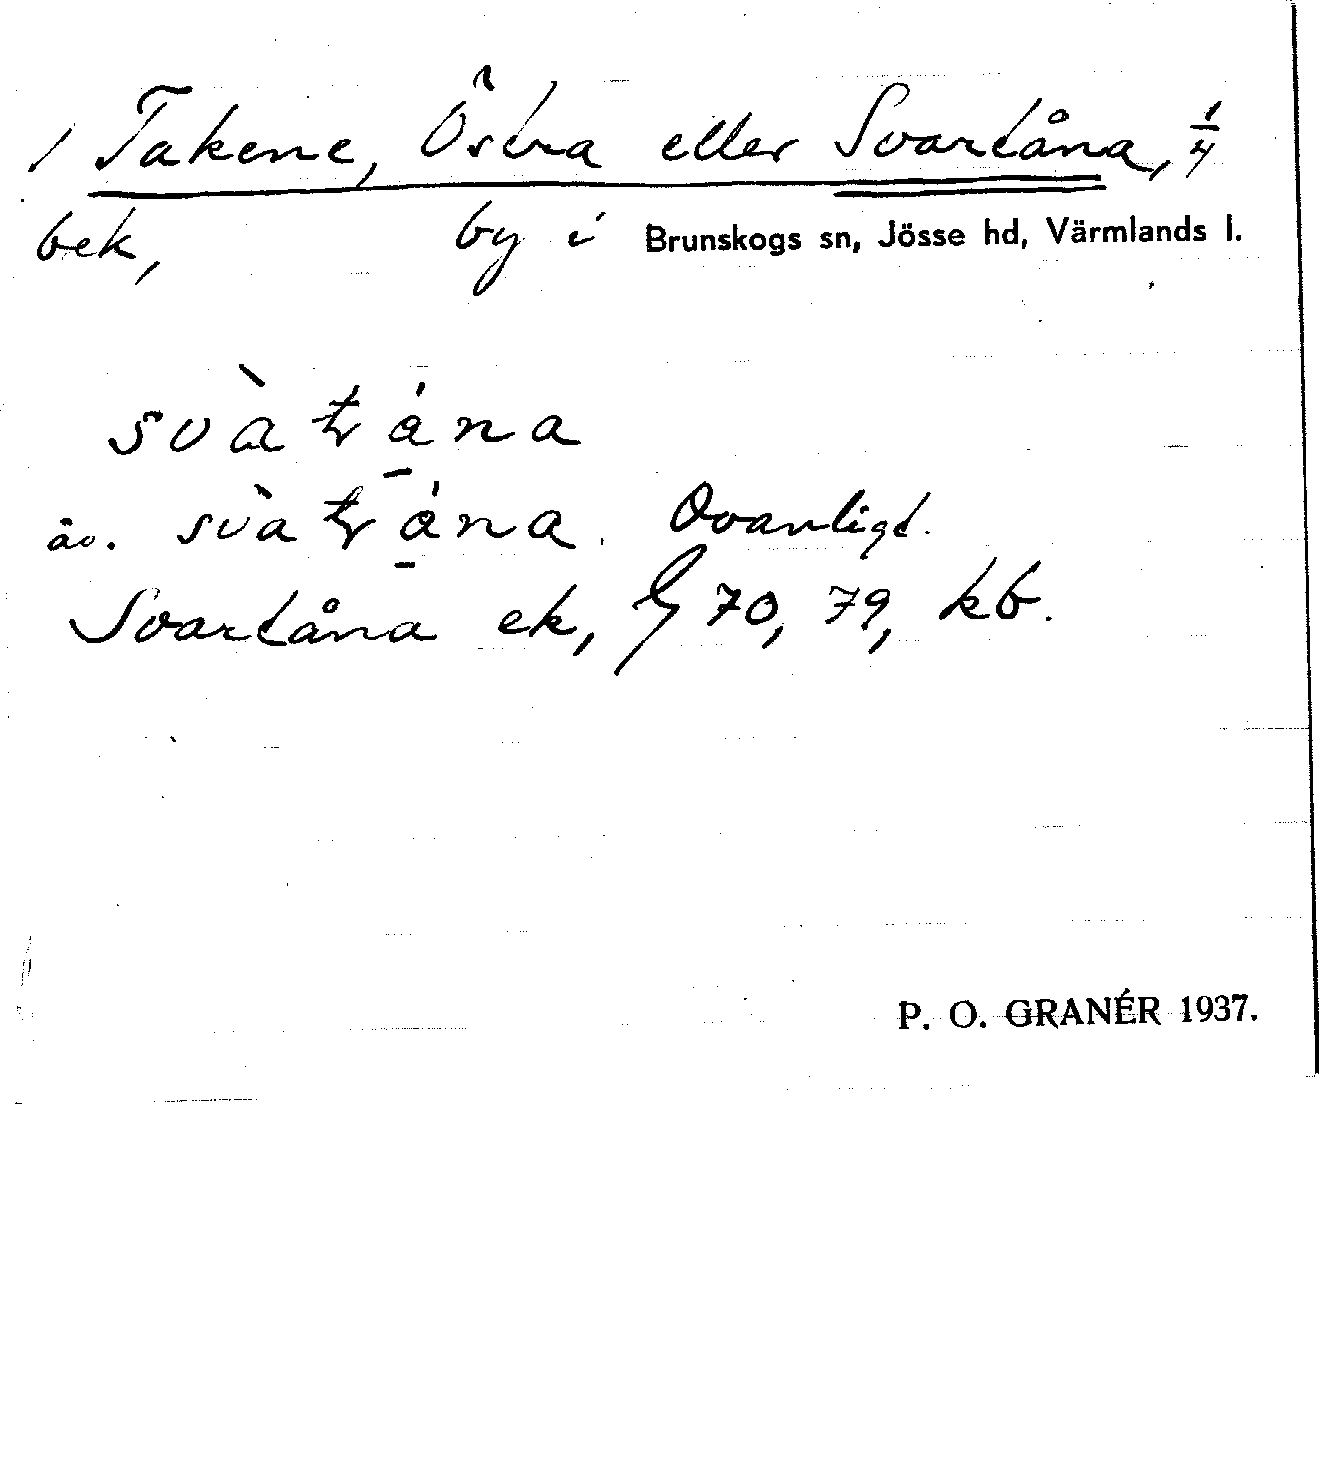 / Takene, Östra eller Svartåna, 1/4
bek, by i Brunskogs sn, Jösse hd, Värmlands l.
svàtána
äv. svàtána. Ovanligt.
Svartåna ek, G 70, 79, kb.
P. O. GRANÉR 1937.